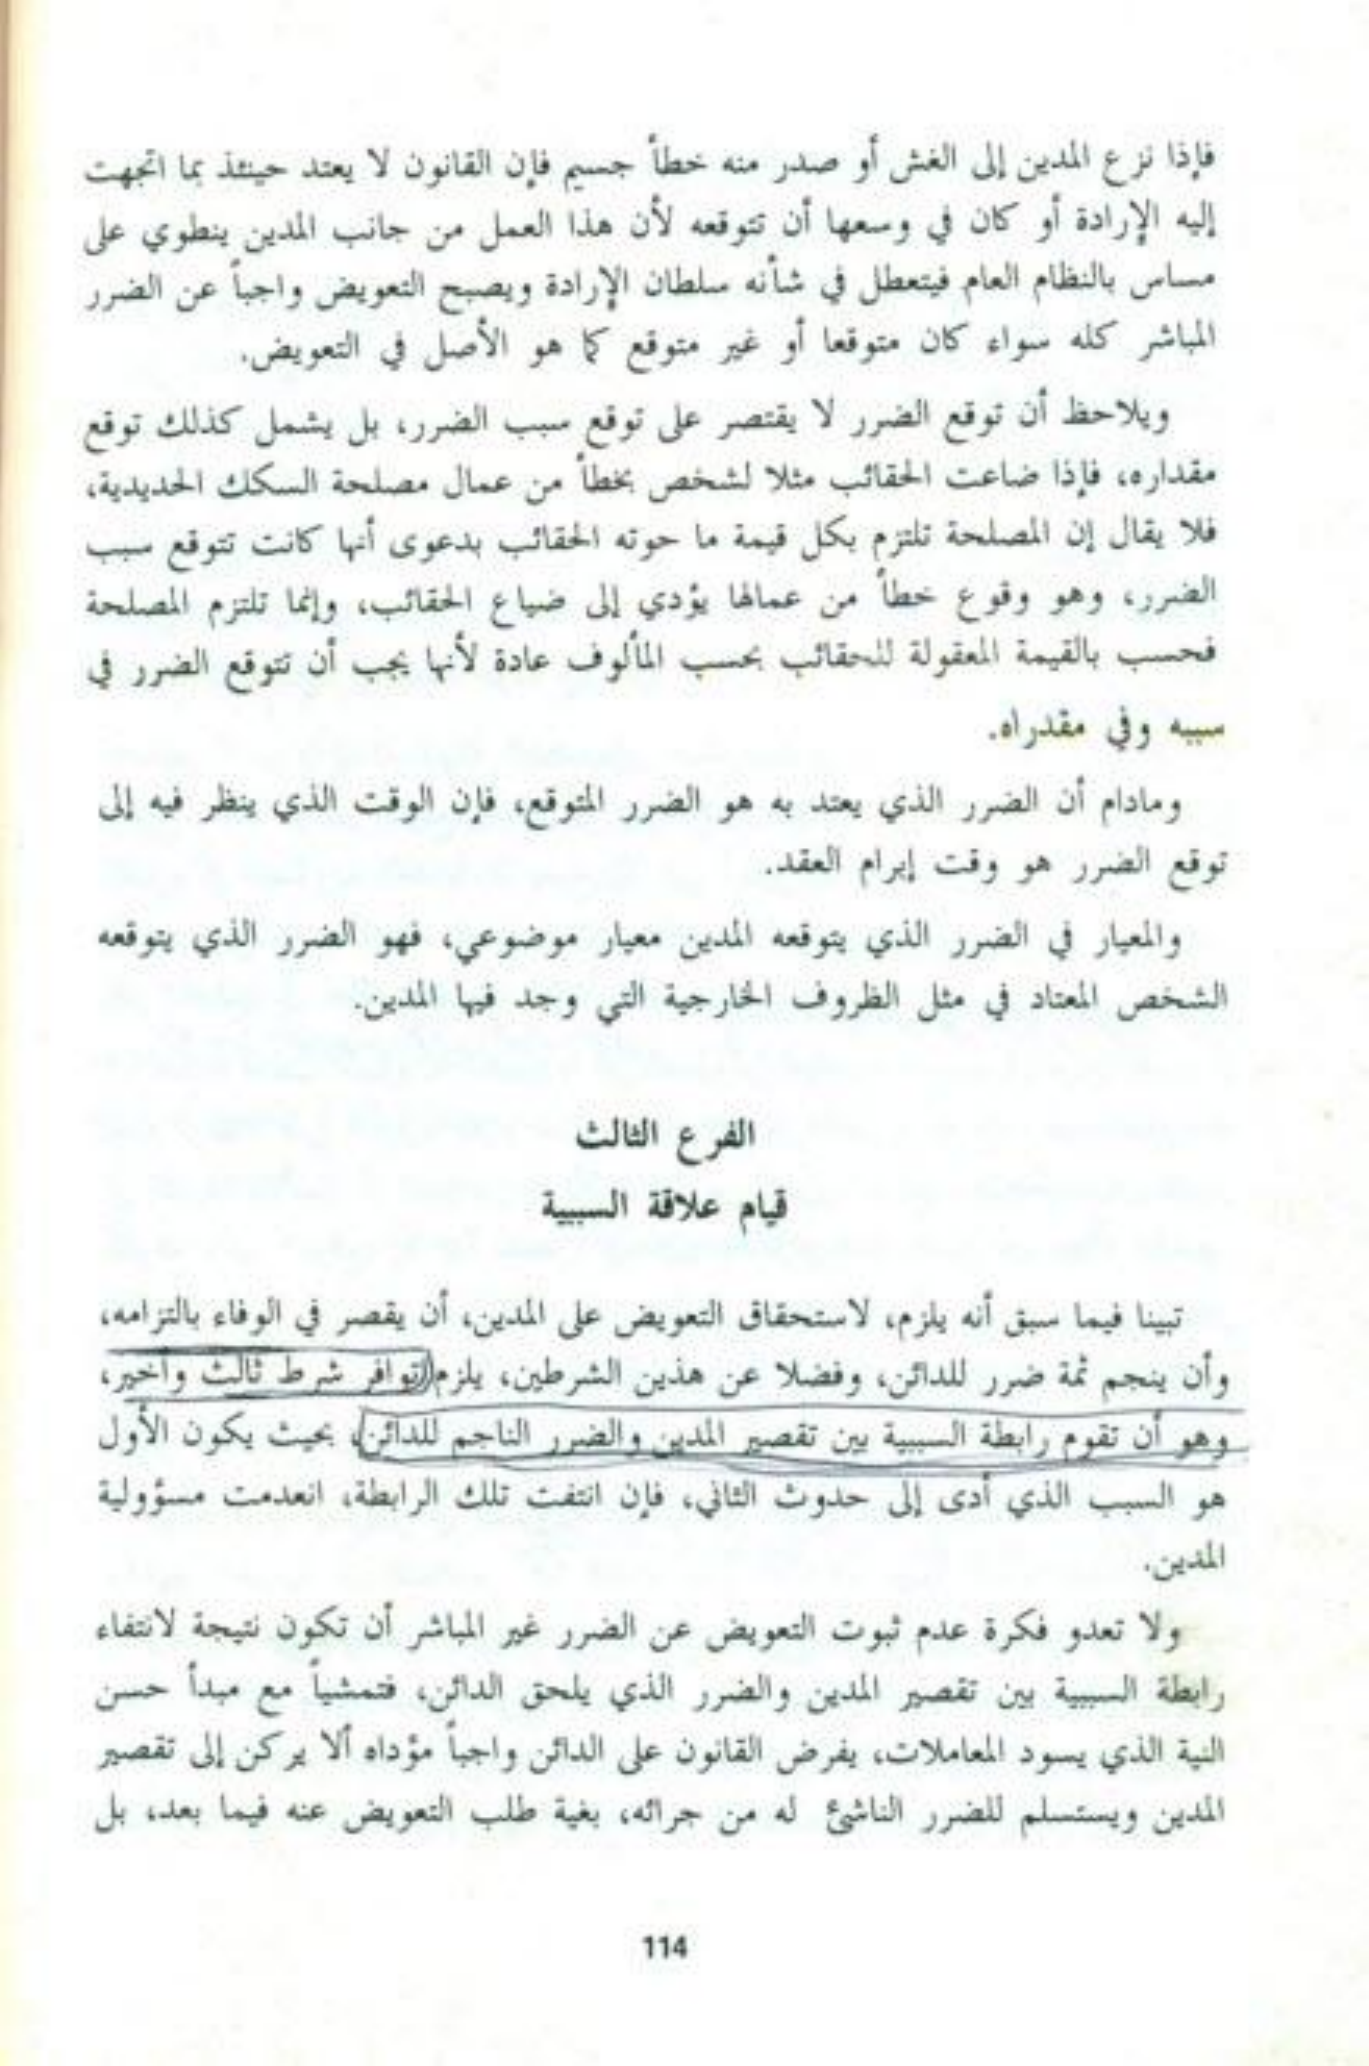 فإذا نزع المدين إلى الغش أو صدر منه خطأ جسيم فإن القانون لا يعتد حينئذ بما اتجهت
إليه الإرادة أو كان في وسعها أن تتوقعه لأن هذا العمل من جانب المدين ينطوي على
مساس بالنظام العام فيتعطل في شأنه سلطان الإرادة ويصبح التعويض واجباً عن الضرر
المباشر كله سواء كان متوقعا أو غير متوقع كما هو الأصل في التعويض.
ويلاحظ أن توقع الضرر لا يقتصر على توقع سبب الضرر، بل يشمل كذلك توقع
مقداره، فإذا ضاعت الحقائب مثلا لشخص بخطأ من عمال مصلحة السكك الحديدية،
فلا يقال إن المصلحة تلتزم بكل قيمة ما حوته الحقائب بدعوى أنها كانت تتوقع سبب
الضرر، وهو وقوع خطأ من عمالها يؤدي إلى ضياع الحقائب، وإنما تلتزم المصلحة
فحسب بالقيمة المعقولة للحقائب بحسب المألوف عادة لأنها يجب أن تتوقع الضرر في
سببه وفي مقدراه.
ومادام أن الضرر الذي يعتد به هو الضرر المتوقع، فإن الوقت الذي ينظر فيه إلى
توقع الضرر هو وقت إبرام العقد.
والمعيار في الضرر الذي يتوقعه المدين معيار موضوعي، فهو الضرر الذي يتوقعه
الشخص المعتاد في مثل الظروف الخارجية التي وجد فيها المدين.
الفرع الثالث
قيام علاقة السببية
تبينا فيما سبق أنه يلزم، لاستحقاق التعويض على المدين، أن يقصر في الوفاء بالتزامه،
وأن ينجم ثمة ضرر للدائن، وفضلا عن هذين الشرطين، يلزم توافر شرط ثالث وأخير،
وهو أن تقوم رابطة السببية بين تقصير المدين والضرر الناجم للدائن، بحيث يكون الأول
هو السبب الذي أدى إلى حدوث الثاني، فإن انتفت تلك الرابطة، انعدمت مسؤولية
المدين.
ولا تعدو فكرة عدم ثبوت التعويض عن الضرر غير المباشر أن تكون نتيجة لانتفاء
رابطة السببية بين تقصير المدين والضرر الذي يلحق الدائن، فتمشياً مع مبدأ حسن
النية الذي يسود المعاملات، يفرض القانون على الدائن واجباً مؤداه ألا يركن إلى تقصير
المدين ويستسلم للضرر الناشئ له من جرائه، بغية طلب التعويض عنه فيما بعد، بل
114